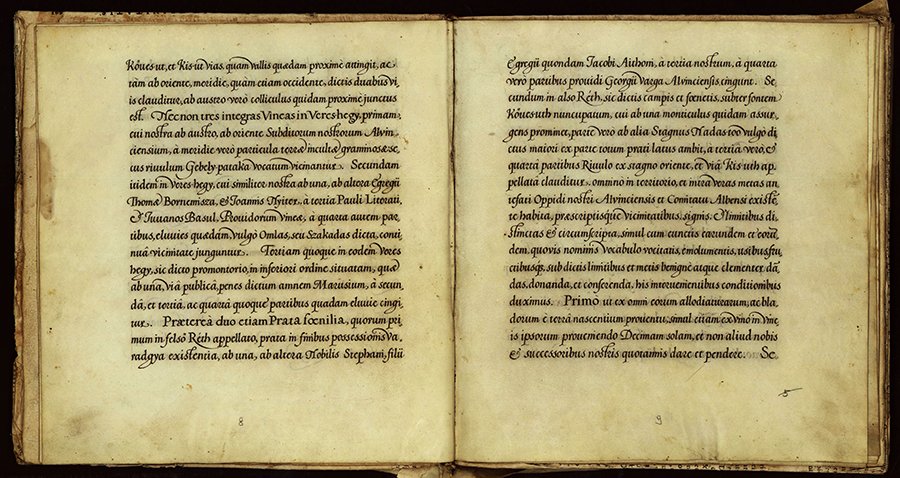 Köues-ut, et Kis-ut vias, quam vallis quædam proximè attingit, ac
tàm ab oriente, meridie, quàm etiam occidente, dictis duabus vi,
is clauditur, ab austro verò colliculus quidam proximè junctus
est. Nec non tres integras Vineas in Veres hegy, primam,
cui nostra ab austro, ab oriente Subditorum nostrorum Alvin,
ciensium, à meridie verò particula terræ incultæ graminosæ se,
cus rivulum Gebely-pataka vocatum vicinantur. Secundam
itidem in veres-hegy, cui similiter nostra ab una, ab altera Egregii
Thomæ Bornemisza, & Joannis Nyiter, à tertia Pauli Literati,
& Juuanos Basul, Prouidorum Vineæ, à quarta autem par,
tibus, eluvies quædam, vulgò Omlas, seu Szakadas dicta, conti,
nuà vicinitate junguntur. Tertiam quoque in eodem veres
hegy, sic dicto promontorio, in inferiori ordine situatam, quæ
ab una, viâ publicâ, penes dictum amnem Marusium, à secun,
dâ, et tertiâ, ac quartâ quoque partibus quadam eluvie cingi,
tur. Prætereà duo etiam Prata fœnilia, quorum pri,
mum in felsö Réth appellato, prata in finibus possessionis Va,
radgya existentia, ab una, ab altera Nobilis Stephani, filii
8
Egregii quondam Jacobi Authoni, à tertia nostrum, à quarta
verò partibus prouidi Georgii Varga Alvinciensis cingunt. Se,
cundum in also Réth, sic dictis campis et fœnetis, subter fontem
Köues-uth nuncupatum, cui ab una monticulus quidam assur,
gens prominet, parte verò ab alia Stagnus Nadas-too vulgò di,
ctus maiori ex parte totum prati latus ambit, à tertia verò, &
quarta partibus Riuulo ex stagno oriente, et viâ Kis-uth ap,
pellatâ clauditur, omnino in territorio, et intra veras metas an,
tefati Oppidi nostri Alvinciensis et Comitatu Albensi existẽ,
te habita, præscriptisque vicinitatibus, signis, & limitibus di,
stinctas & circumscripta, simul cum cunctis earundem et eorũ,
dem, quovis nominis vocabulo vocitatis, emolumentis, usibus, fru,
ctibusq3, sub dictis limitibus et metis benignè atque clementer dã,
das, donanda, et conferenda, his intervenientibus conditionibus
duximus. Primò ut ex omni eorum allodiaturarum, ac bla,
dorum è terrâ nascentium prouentu, simul etiam ex vino in vine,
is ipsorum proueniendo Decimam solam, et non aliud nobis
& successoribus nostris quotannis dare et pendere. Se,
5
9